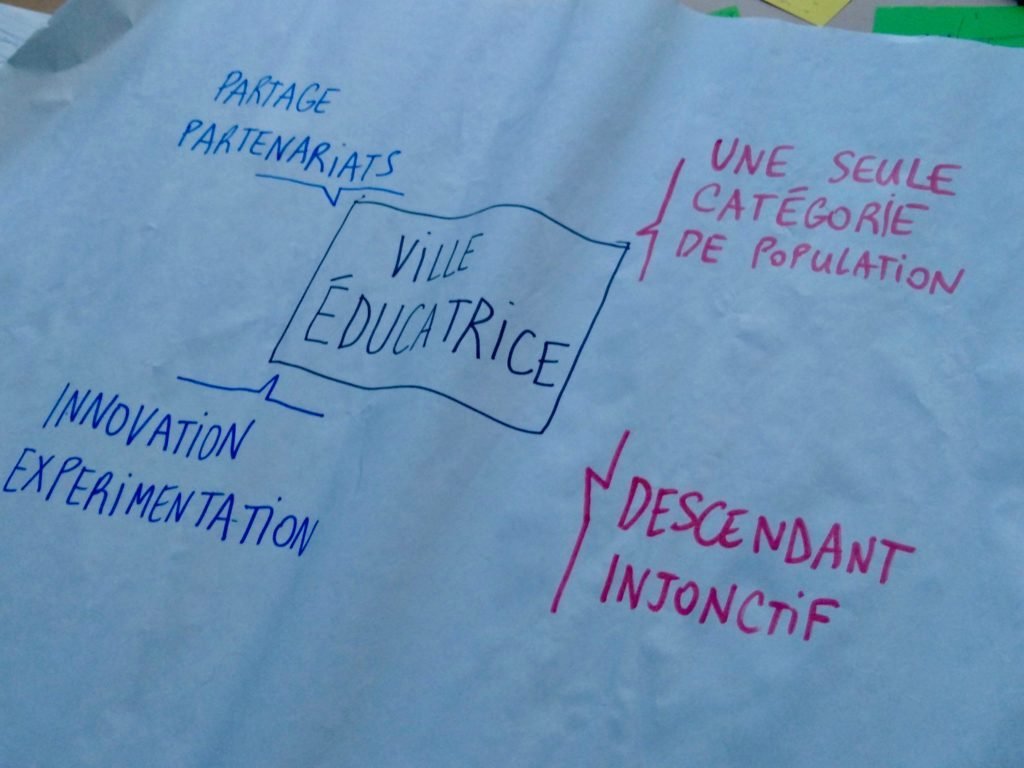 PARTAGE
PARTENARiATS
UNE SEULE
CATÉGORIE
DE POPULATiON
ViLLE
ÉDUCATRiCE
INNOVATiON
EXPERiMENTATiON
DESCENDANT
INJONCTiF